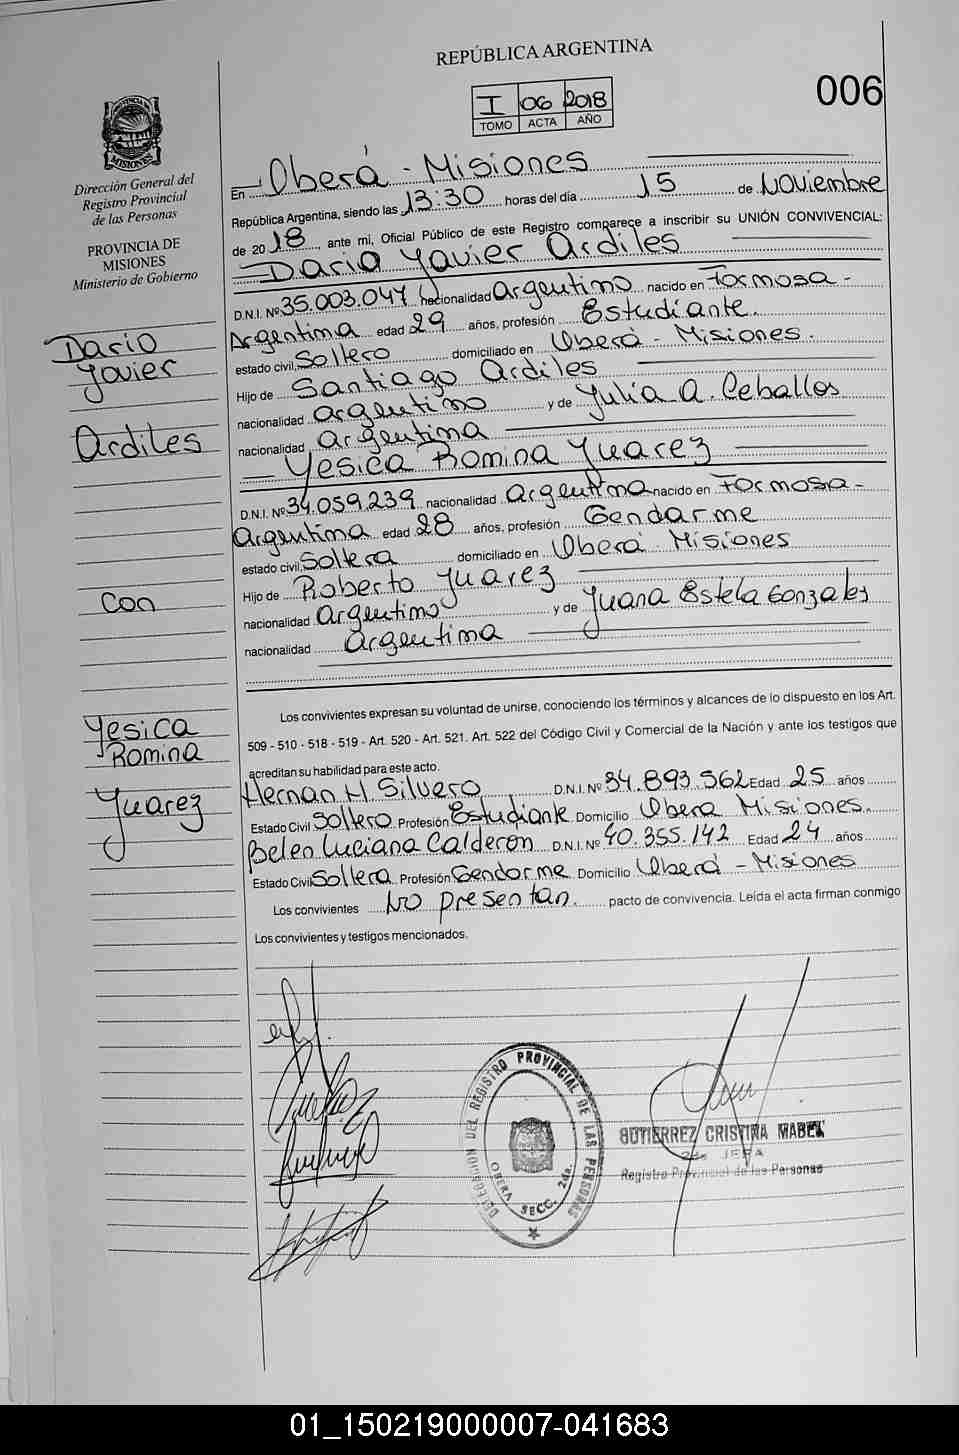 REPÚBLICA ARGENTINA
I 06 2018
TOMO ACTA AÑO
006
PROVINCIA DE
MISIONES
Dirección General del
Registro Provincial
de las Personas
PROVINCIA DE
MISIONES
Ministerio de Gobierno
Dario
Javier
Ardiles
con
Yesica
Romina
Juarez
En Oberá - Misiones
República Argentina, siendo las 13:30 horas del día 15 de Noviembre
de 2018, ante mi, Oficial Público de este Registro comparece a inscribir su UNIÓN CONVIVENCIAL:
Dario Javier Ardiles
D.N.I. Nº 35.003.047 nacionalidad Argentino nacido en Formosa -
Argentina edad 29 años, profesión Estudiante.
estado civil, Soltero domiciliado en Oberá - Misiones.
Hijo de Santiago Ardiles
nacionalidad argentino y de Julia A. Ceballos
nacionalidad argentina
Yesica Romina Juarez
D.N.I. Nº 34.059.239 nacionalidad Argentina nacido en Formosa -
Argentina edad 28 años, profesión Gendarme
estado civil, Soltera domiciliado en Oberá Misiones
Hijo de Roberto Juarez
nacionalidad argentino y de Juana Estela Gonzalez
nacionalidad argentina
Los convivientes expresan su voluntad de unirse, conociendo los términos y alcances de lo dispuesto en los Art.
509 - 510 - 518 - 519 - Art. 520 - Art. 521. Art. 522 del Código Civil y Comercial de la Nación y ante los testigos que
acreditan su habilidad para este acto.
Hernan H Silvero D.N.I. Nº 34.893.562 Edad 25 años
Estado Civil Soltero Profesión Estudiante Domicilio Obera Misiones.
Belen Luciana Calderon D.N.I. Nº 40.355.142 Edad 24 años
Estado Civil Soltera Profesión Gendarme Domicilio Oberá - Misiones
Los convivientes No presentan. pacto de convivencia. Leída el acta firman conmigo
Los convivientes y testigos mencionados.
DELEGACION DEL REGISTRO PROVINCIAL DE LAS PERSONAS
OBERA SECC. 2da.
GUTIERREZ CRISTINA MABEL
2da JEFA
Registro Provincial de las Personas
01_150219000007-041683